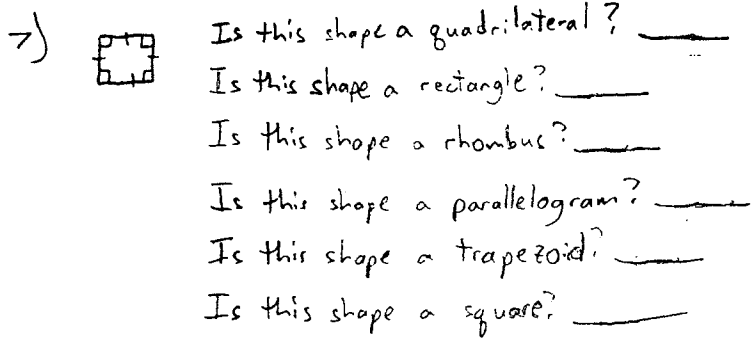 7) Is this shape a quadrilateral? ____
Is this shape a rectangle? ____
Is this shape a rhombus? ____
Is this shape a parallelogram? ____
Is this shape a trapezoid? ____
Is this shape a square? ____